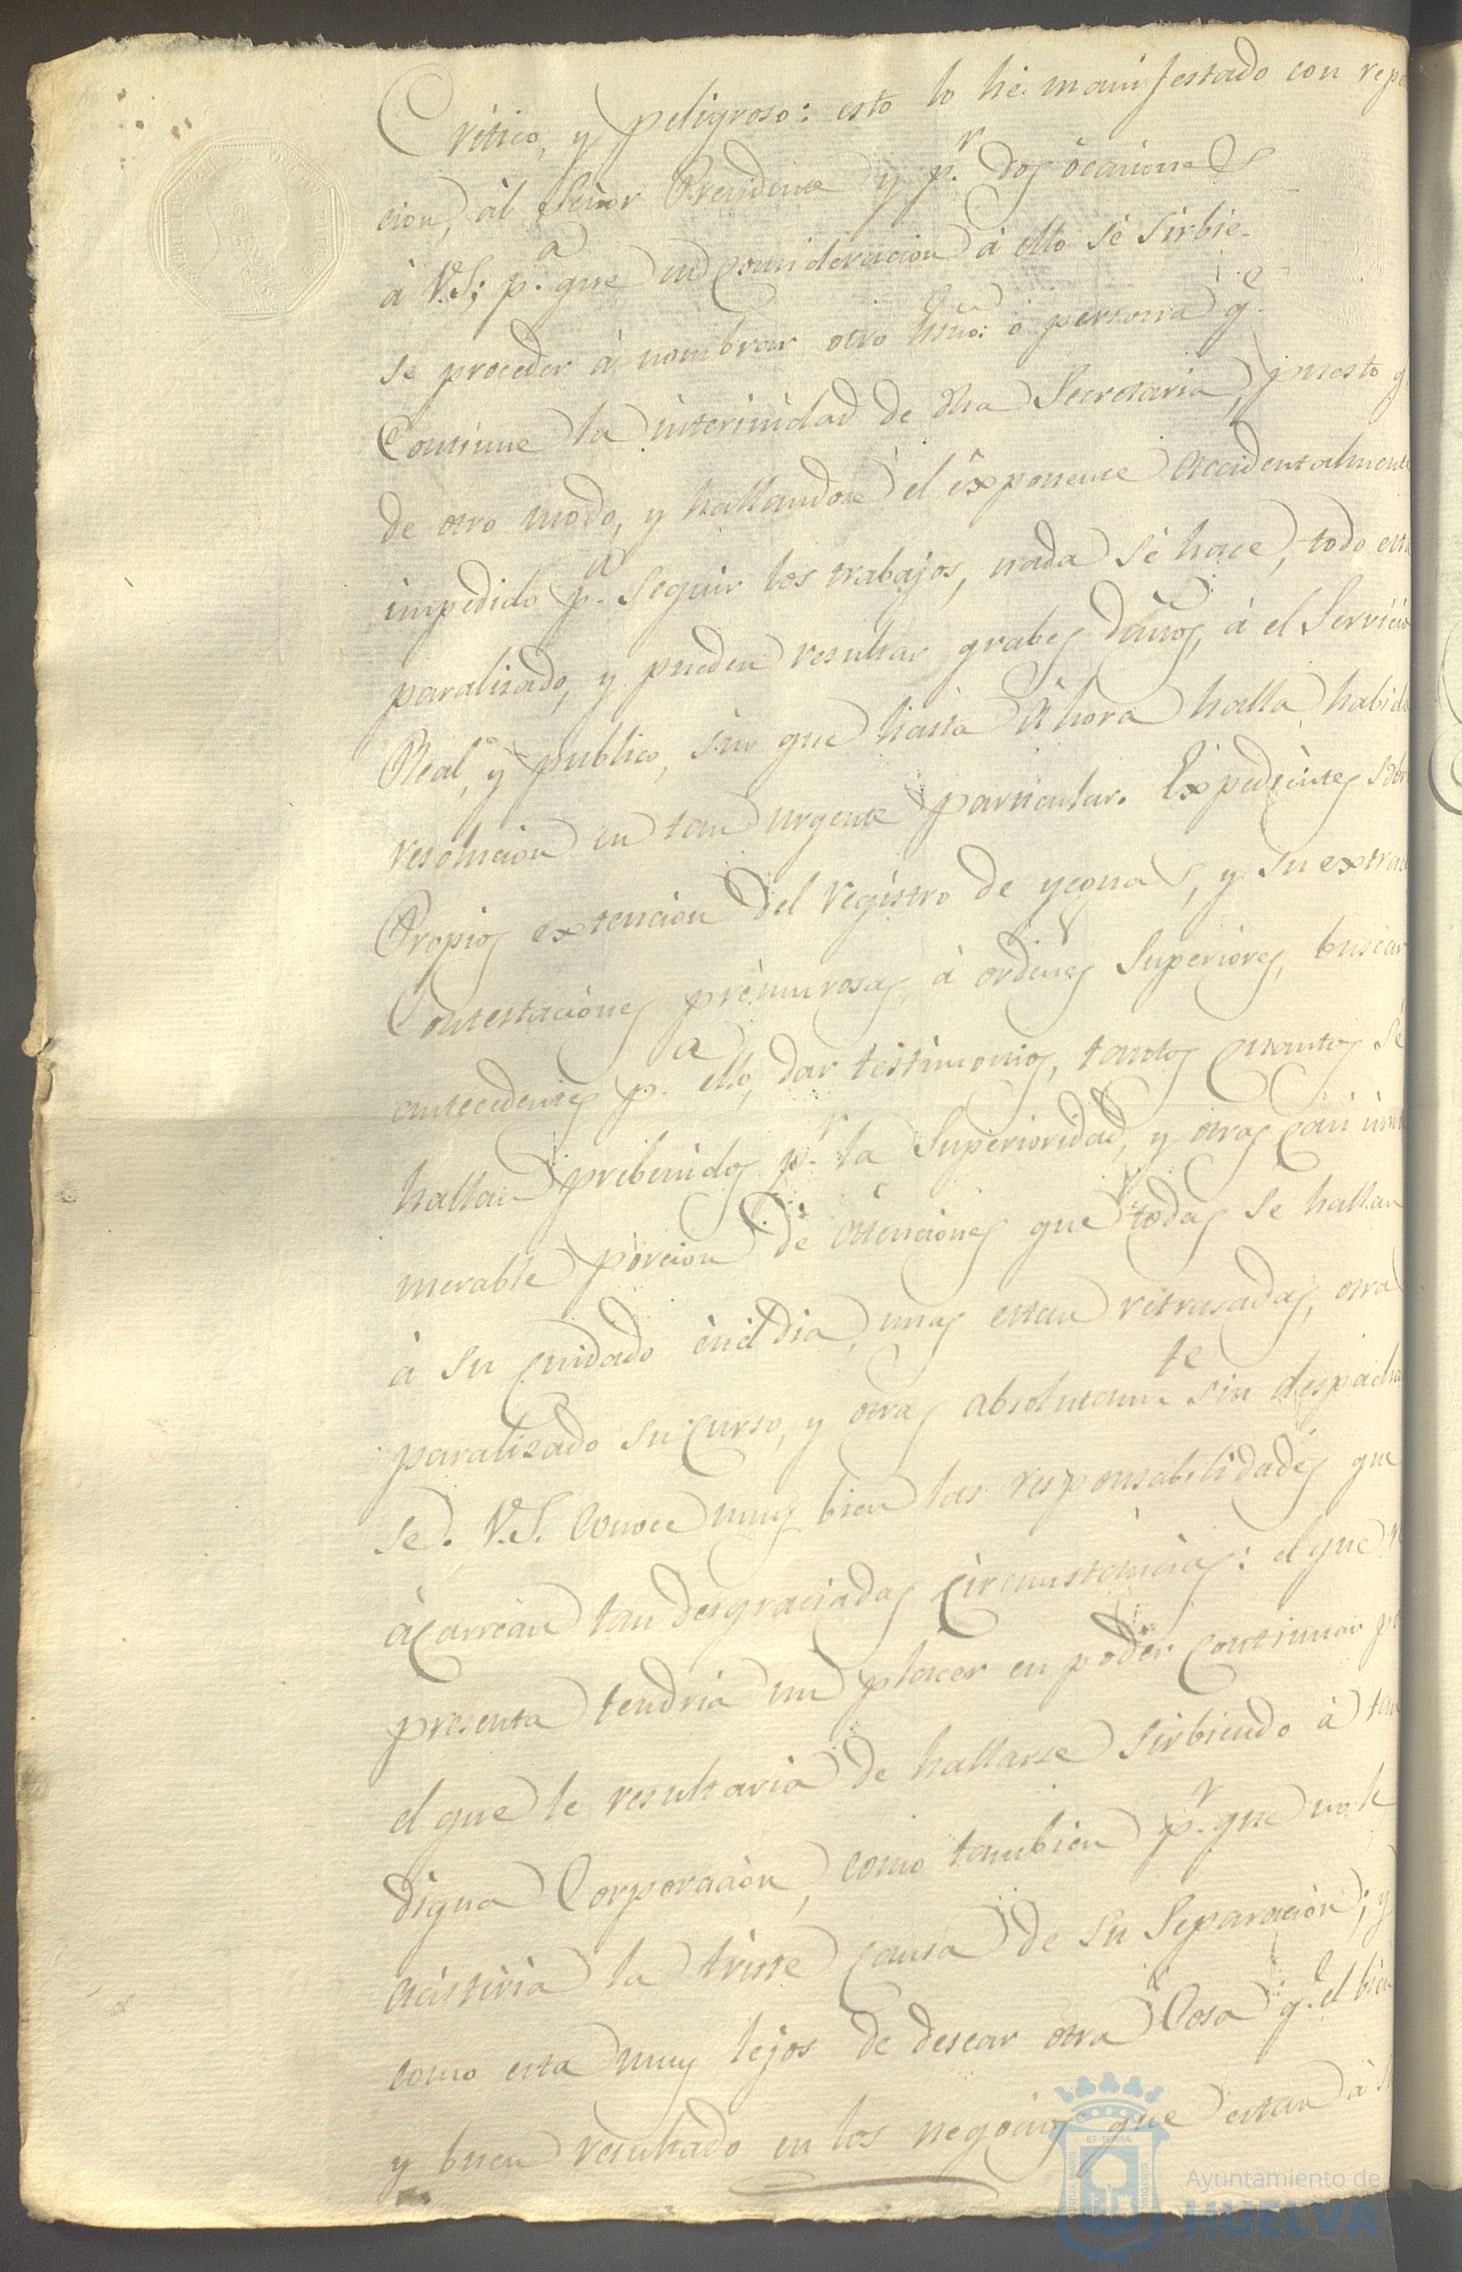 Critico, y peligroso: esto lo hè manifestado con repe
cion, àl Señor Presidente y p.r dos òcaciones
à V.S; p.a que en consideracion à ello sè sirbie-
se proceder à nombrar otro Essño: ò persona q.e
Continue la interinidad de dha Secretaria, puesto q
de otro modo, y hallandose el èxponente accidentalmente
impedido p.a seguir los trabajos, nada sè hace, todo està
paralizado, y pueden resultar grabes daños, à el Servicio
Real, y publico, sin que hasta àhora halla habido
resolucion en tan urgente particular. Expedientes sobr
Propios extencion del registro de yeguas, y su extrac
Contestaciones prèmurosas, à ordenes Superiores, buscar
antecedentes p.a ello, dar testimonios, tantos quantos sè
hallan prebenidos p.r la Superioridad, y otras càsi inn
merable porcion dè atenciones que todas se hallan
à su cuidado èn el dia, unas estan retrasadas, otra
paralizado su curso, y otras absolutam.te sin despacha
se. V.S. conoce muy bien las responsabilidades que
àcarrèan tan desgraciadas circunstancias: el que re
presenta tendria un placer en poder continuar p
el que le resultaria de hallarse sirbiendo à tan
digna Corporacion, como tambien p.r que no le
àcistiria la triste causa de su Separacion; y
como esta muy lejos de desear otra Cosa q.e el bien
y buen resultado en los negocios que estan à su
ET TERRA
Ayuntamiento de
HUELVA